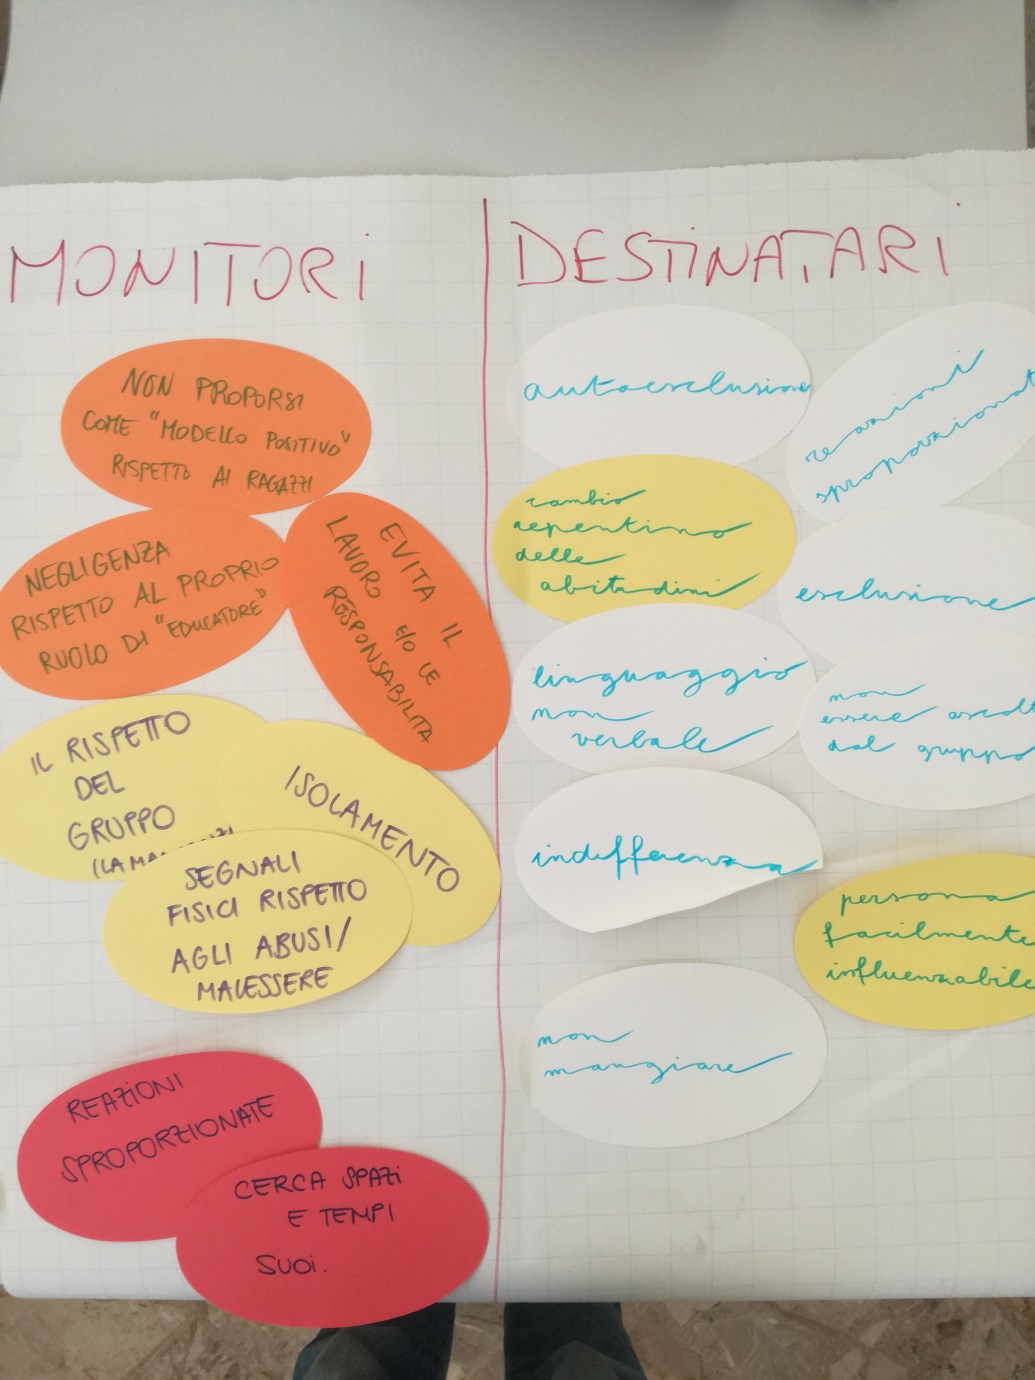 MONITORI
NON PROPORSI
COME "MODELLO POSITIVO"
RISPETTO AI RAGAZZI
NEGLIGENZA
RISPETTO AL PROPRIO
RUOLO DI "EDUCATORE"
EVITA IL
LAVORO E/O LE
RESPONSABILITÀ
IL RISPETTO
DEL
GRUPPO
ISOLAMENTO
SEGNALI
FISICI RISPETTO
AGLI ABUSI/
MALESSERE
REAZIONI
SPROPORZIONATE
CERCA SPAZI
E TEMPI
SUOI.
DESTINATARI
autoesclusione
reazioni
sproporzionat
cambio
repentino
delle
abitudini
esclusione
linguaggio
non
verbale
non
essere ascolt
dal gruppo
indifferenza
persona
facilmente
influenzabile
non
mangiare